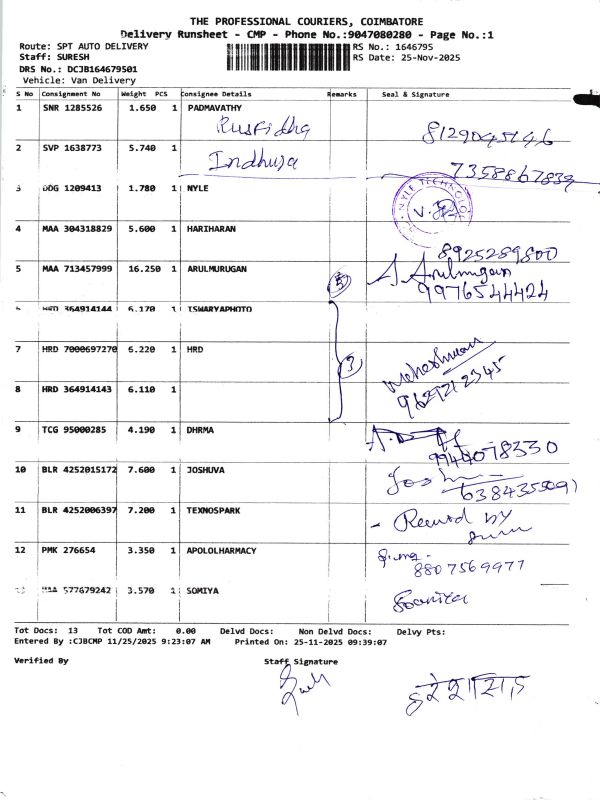 THE PROFESSIONAL COURIERS, COIMBATORE
Delivery Runsheet - CMP - Phone No.:9047080280 - Page No.:1
Route: SPT AUTO DELIVERY RS No.: 1646795
Staff: SURESH RS Date: 25-Nov-2025
DRS No.: DCJB164679501
Vehicle: Van Delivery
S No Consignment No Weight PCS Consignee Details Remarks Seal & Signature
1 SNR 1285526 1.650 1 PADMAVATHY
8129045146
2 SVP 1638773 5.740 1 Indhuja
7358867839
3 DDG 1209413 1.780 1 NYLE
NYLE TECHNOLOG
4 MAA 304318829 5.600 1 HARIHARAN
8925289800
5 MAA 713457999 16.250 1 ARULMURUGAN 5 S. Arulmugan
9976544424
6 HRD 364914144 6.170 1 ISWARYAPHOTO
7 HRD 7000697270 6.220 1 HRD 3
9629212345
8 HRD 364914143 6.110 1
9 TCG 95000285 4.190 1 DHRMA
9944078330
10 BLR 4252015172 7.600 1 JOSHUVA
11 BLR 4252006397 7.200 1 TEXNOSPARK - Received by
12 PMK 276654 3.350 1 APOLOLHARMACY
8807569977
13 MAA 577679242 3.570 1 SOMIYA
Tot Docs: 13 Tot COD Amt: 0.00 Delvd Docs: Non Delvd Docs: Delvy Pts:
Entered By :CJBCMP 11/25/2025 9:23:07 AM Printed On: 25-11-2025 09:39:07
Verified By Staff Signature